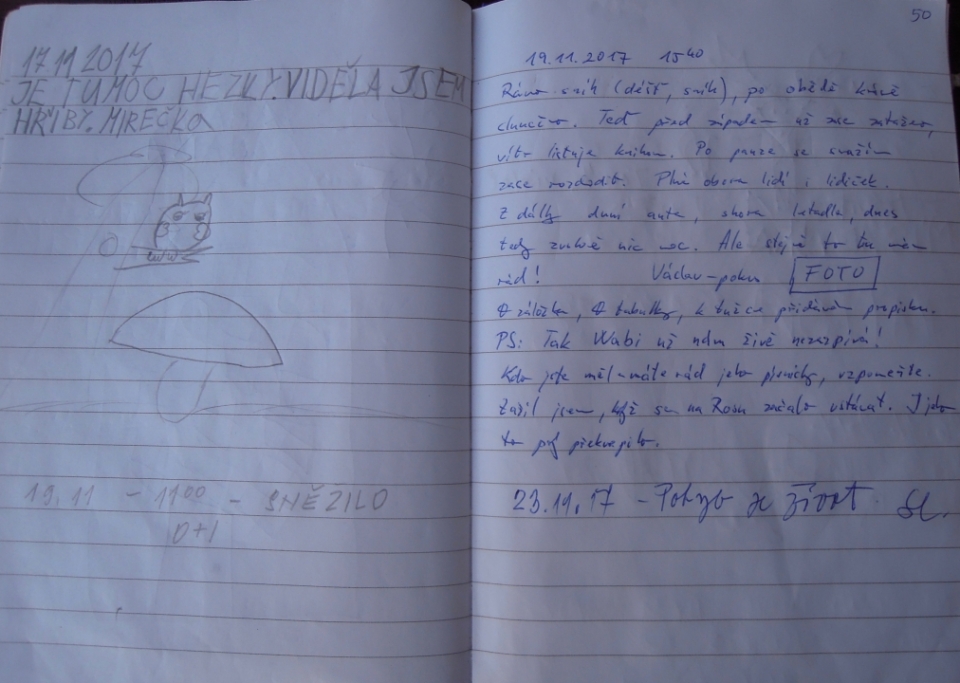 17 11 2017
JE TU MOC HEZKY. VIDĚLA JSEM
HŘIBY. MIREČKA
19.11 - 11⁰⁰ - SNĚŽILO
D+I
50
19.11.2017 15⁴⁰
Ráno sníh (déšť, sníh), po obědě krásně
slunečno. Teď před západem už zase zataženo,
vítr listuje knihou. Po pauze se snažím
zase rozchodit. Plná obora lidí i lidiček.
Z dálky duní auta, shora letadla, dnes
tedy zvěře nic moc. Ale stejně to tu mám
rád! Václav-pokus FOTO
záložka, tabulky, k tužce přidávám propisku.
PS: Tak Wabi už nám živě nezazpívá!
Kdo jste měl-máte rád jeho písničky, vzpomeňte.
Zažil jsem, když se na Rosu začalo vstávat. I jeho
to prý překvapilo.
23.11.17 - Pohyb je život.